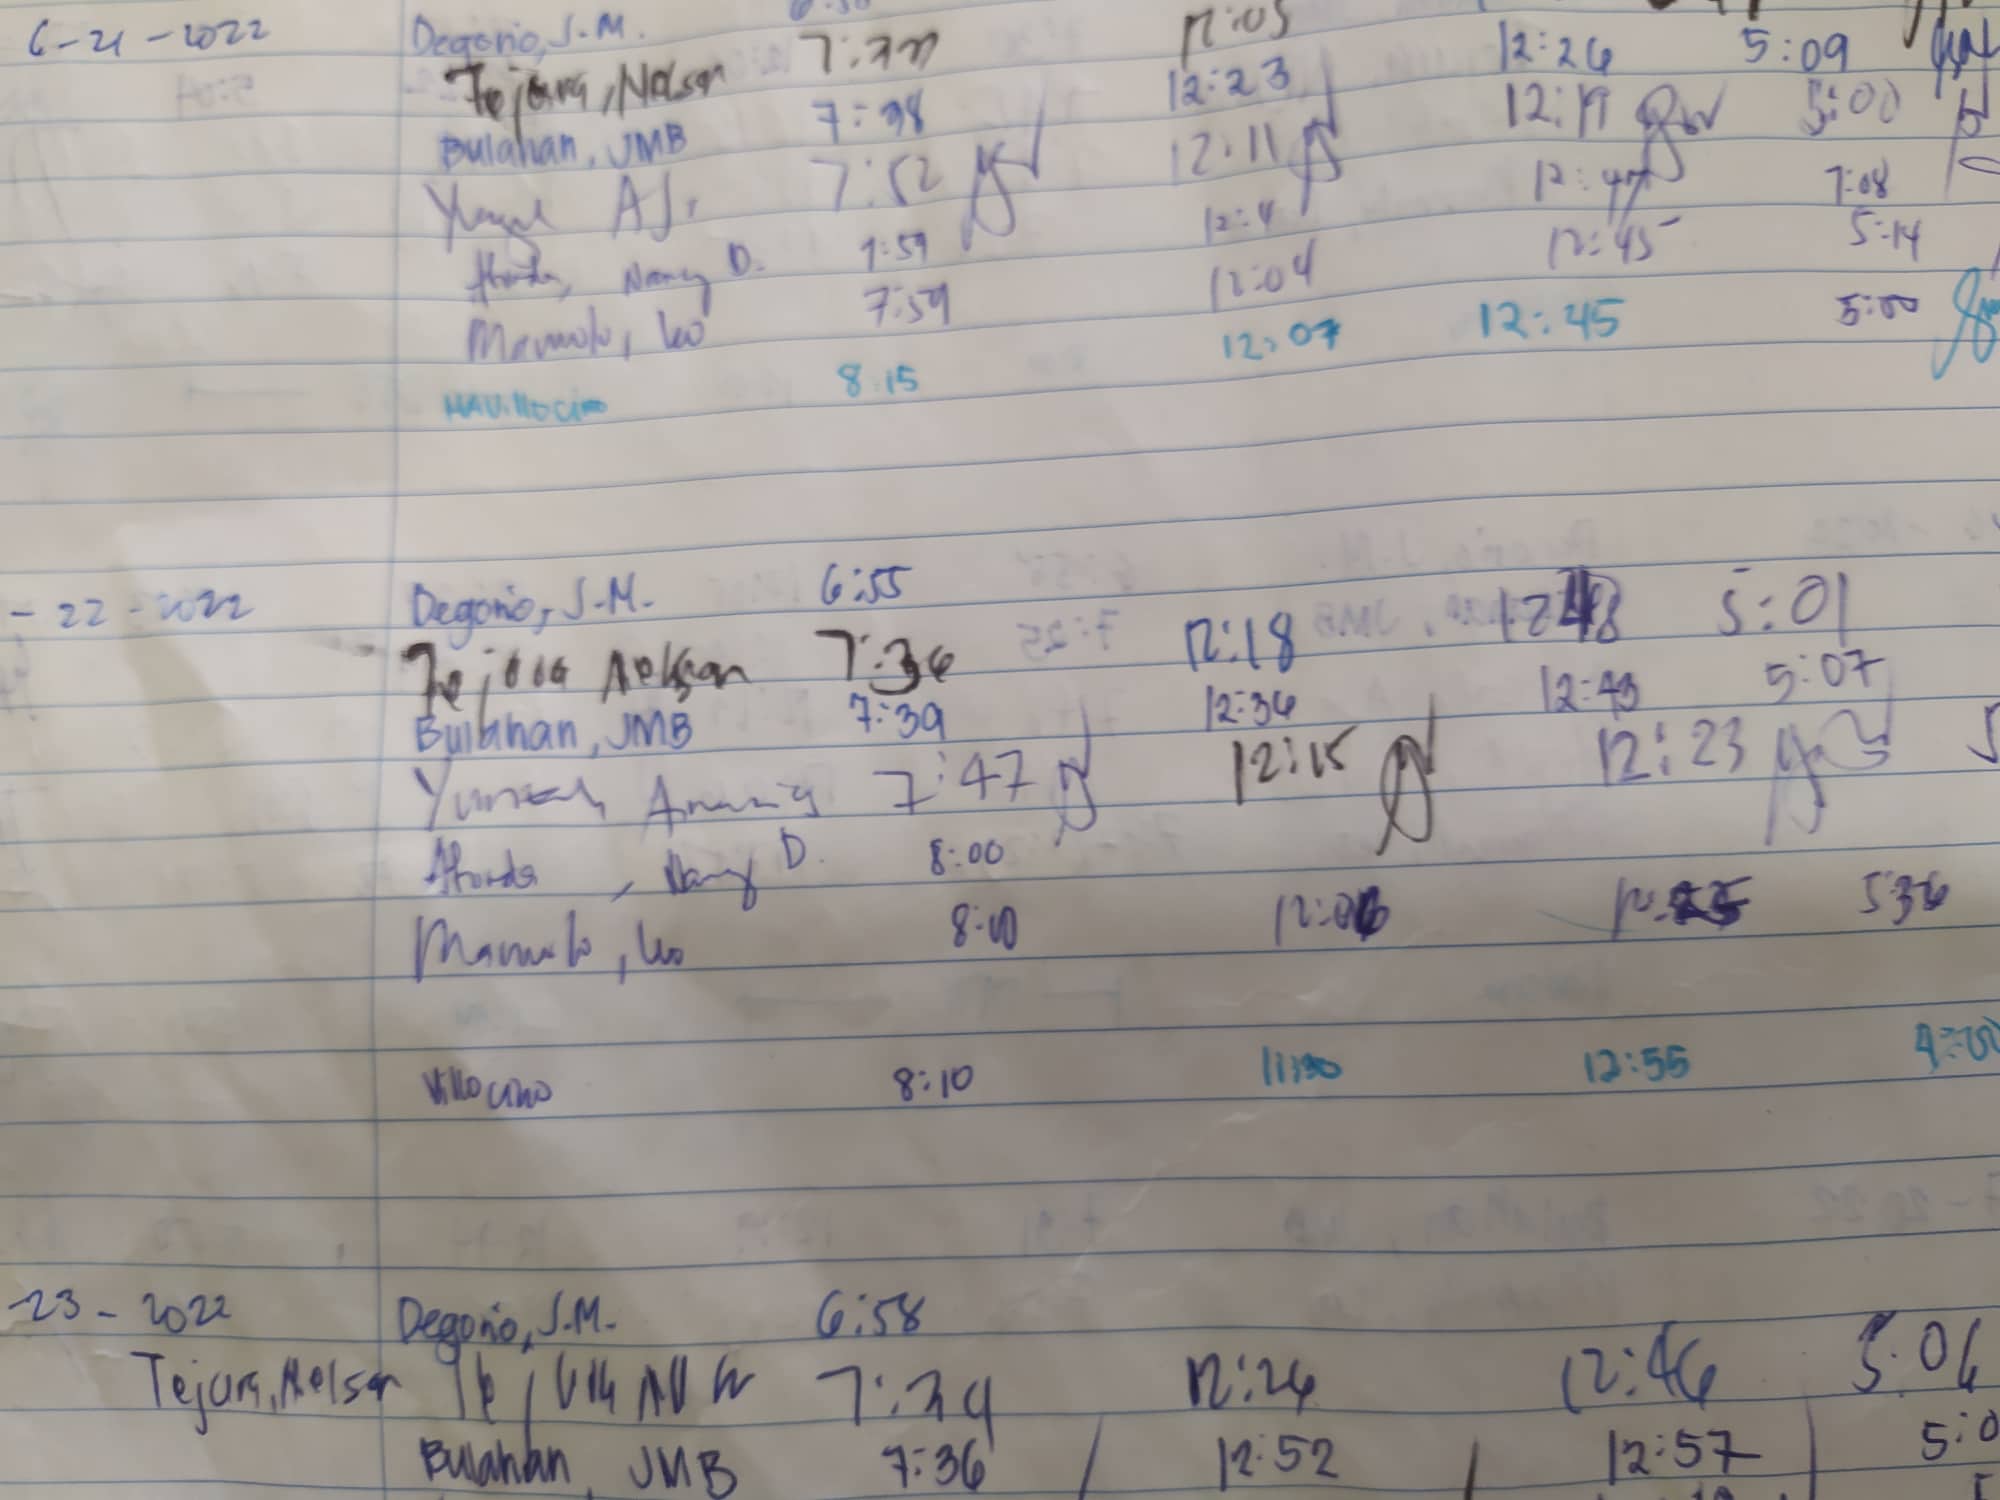 6-21-2022 Degorio, J.M.
Tejura, Nelson 12:05 12:26 5:09
Bulahan, JMB 7:38 12:23 12:19 5:00
AJ. 7:52 12:11 12:47 7:08
Nancy D. 7:59 12:4 12:45 5:14
Mamolo, Leo 7:59 12:04
8:15 12:07 12:45 5:00
-22-2022 Degorio, J.M. 6:55
Tejura Nelson 7:36 12:18 5:01
Bulahan, JMB 7:39 12:36 12:43 5:07
7:47 12:15 12:23
, Nancy D. 8:00
Mamolo, Leo 8:10 12:06 5:36
Villocino 8:10 11:30 12:55 4:00
-23-2022 Degorio, J.M. 6:58
Tejura, Nelson 7:34 12:26 12:46 5:06
Bulahan, JMB 7:36 12:52 12:57 5:0